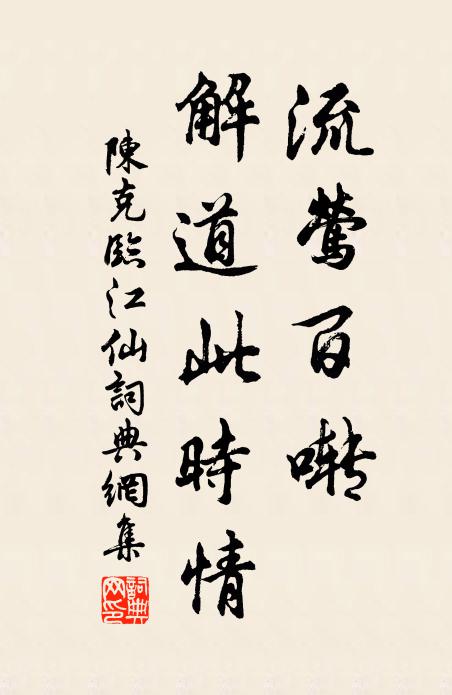 流鶯百囀
解道此時情
陳克臨江仙詞典網集
詞典網印